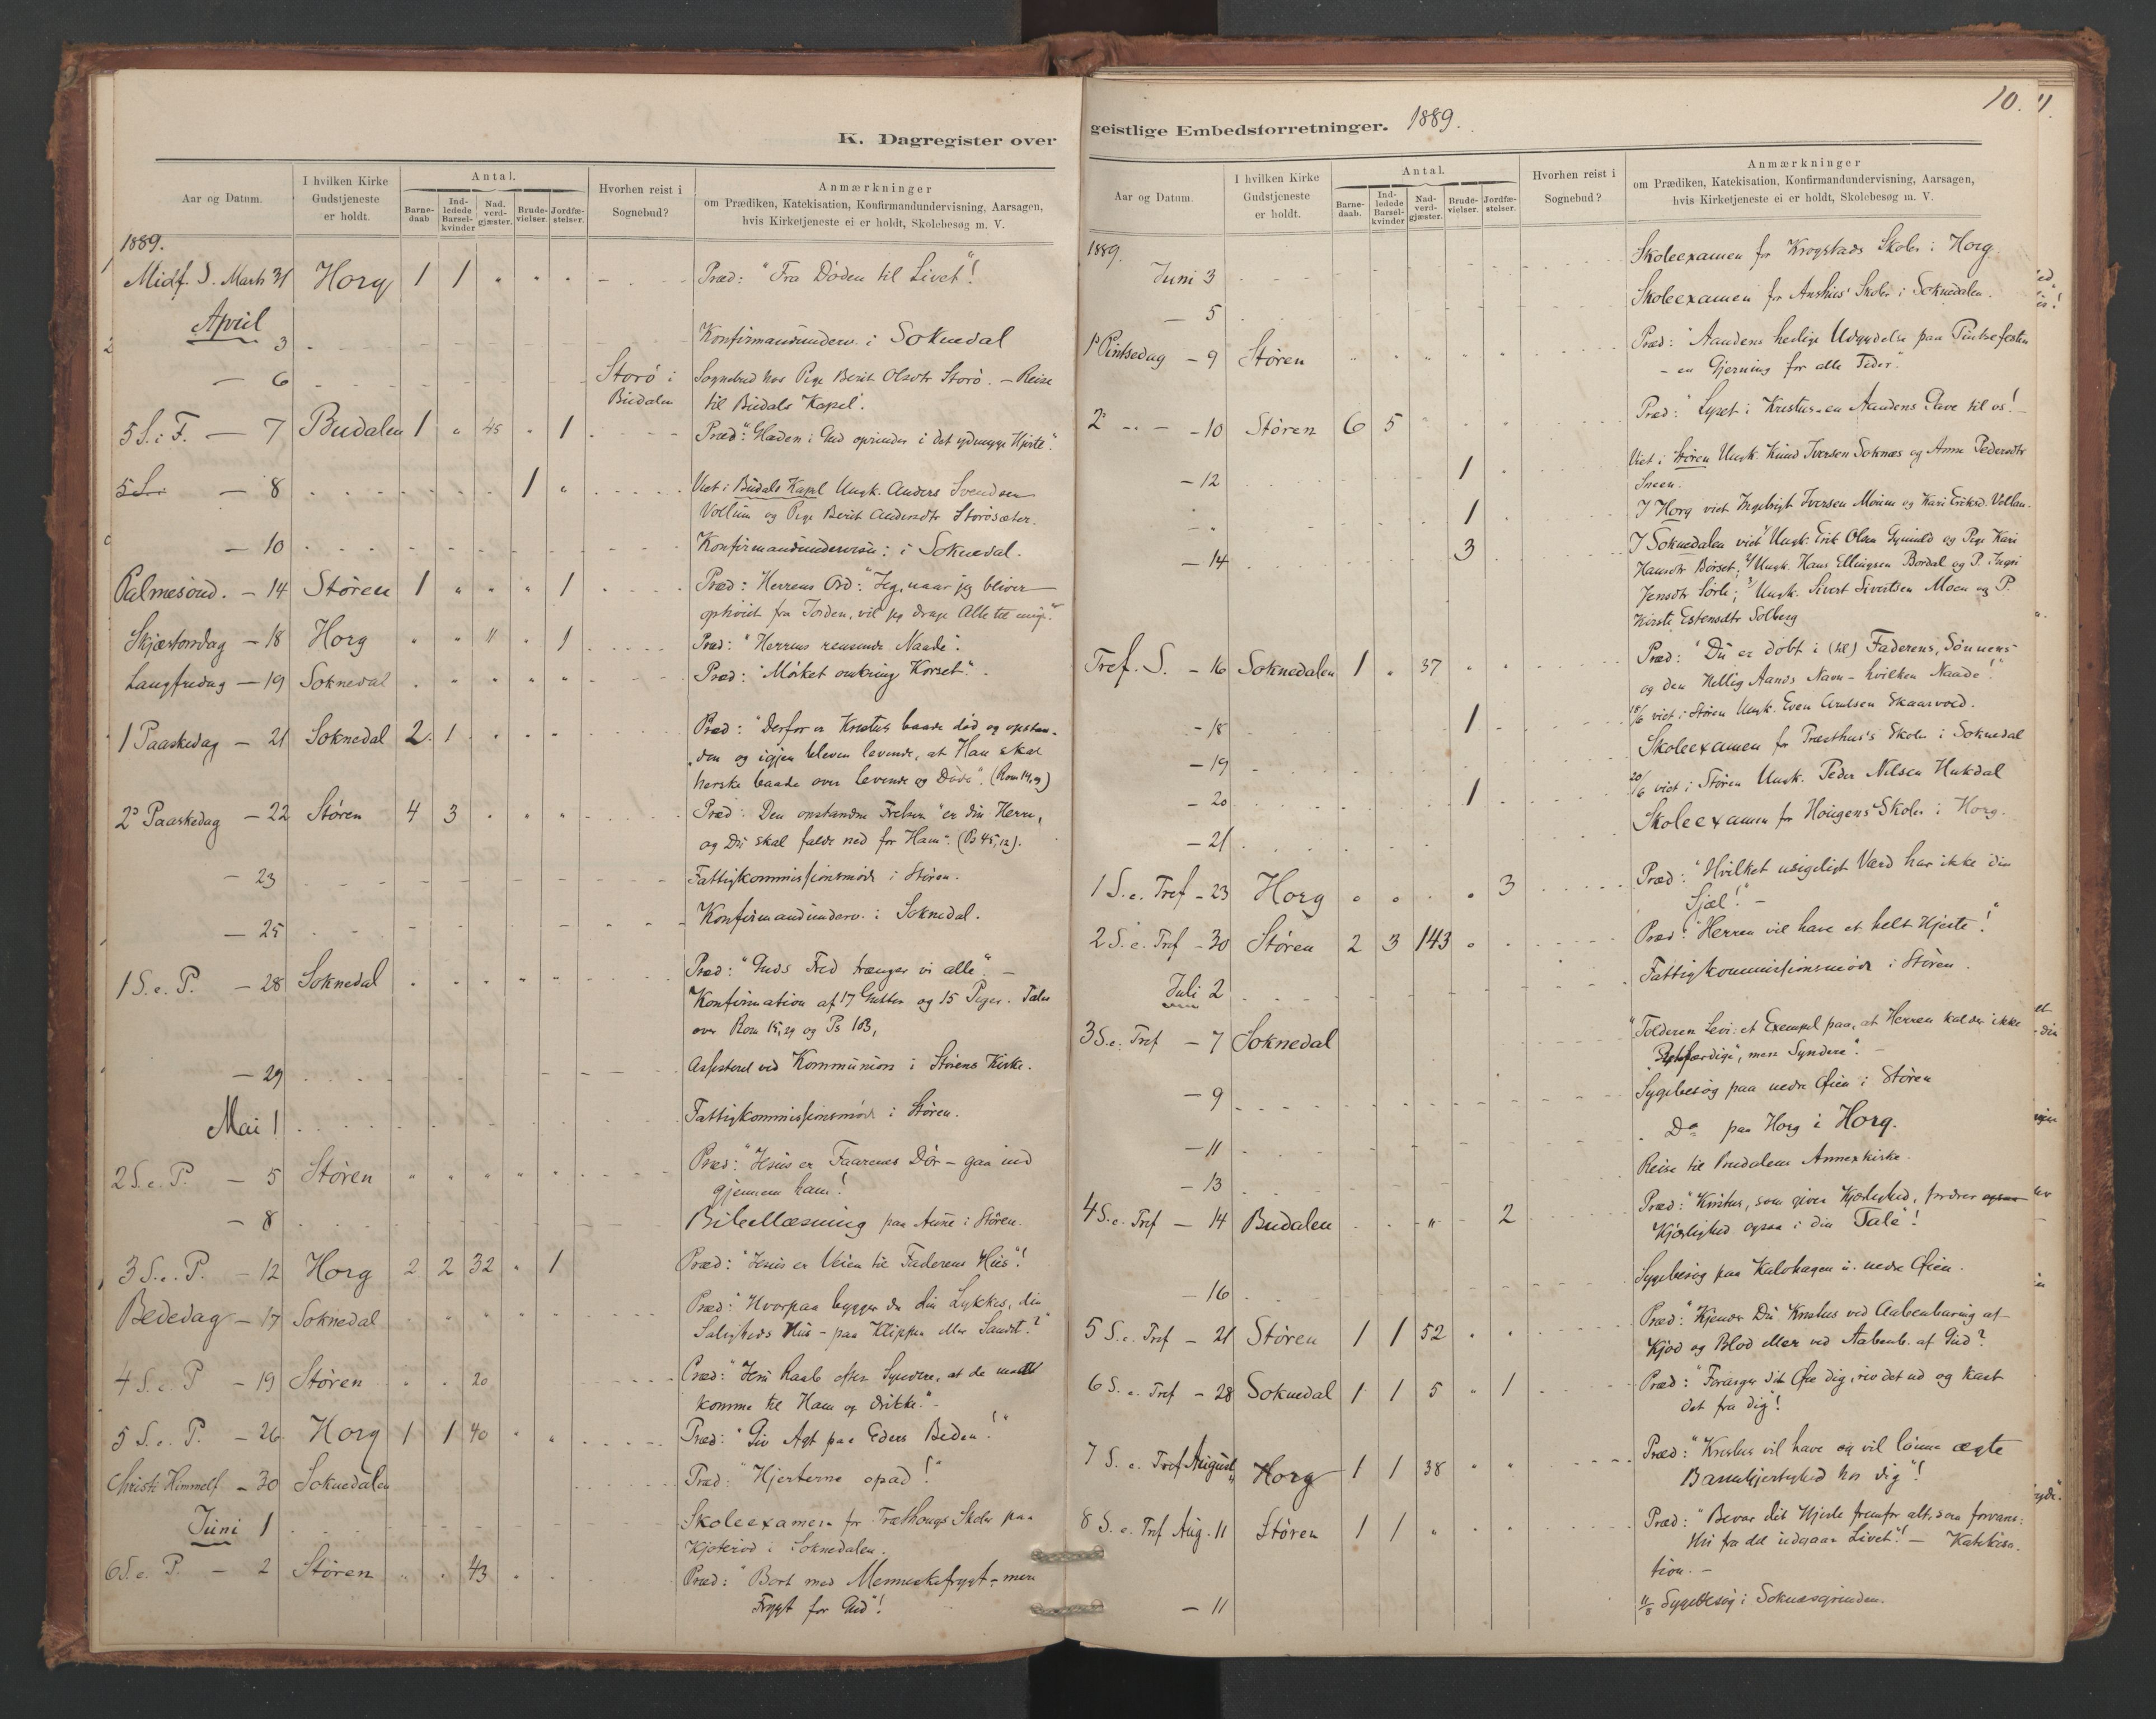 K. Dagregister over
Aar og Datum.
I hvilken Kirke Gudstjeneste er holdt.
Antal.
Barne-daab
Ind-ledede Barsel-kvinder
Nad-verd-gjæster.
Brude-vielser.
Jordfæ-stelser.
Hvorhen reist i Sognebud?
Anmærkninger
om Prædiken, Katekisation, Konfirmandundervisning, Aarsagen,
hvis Kirketjeneste ei er holdt, Skolebesøg m. V.
1889.
Midf. S. Marts 31 Horg 1 1 Præd: "Fra Døden til Livet"!
April 3 Konfirmandunderv. i Soknedal
— 6 Storø i Budalen Sognebud hos Pige Berit Olsdtr Storø. — Reise
til Budals Kapel.
5 S. i F. — 7 Budalen 1 " 45 " 1 Præd: "Glæden i Gud oprinder i det ydmyge Hjerte".
5 S. — 8 1 " Viet i Budals Kapel Ungk. Anders Svendsen
Vollum og Pige Berit Andersdtr Storøsæter.
— 10 Konfirmandundervisn: i Soknedal.
Palmesønd. — 14 Støren 1 " " " 1 Præd: Herrens Ord: "Jeg, naar jeg bliver
ophøiet fra Jorden, vil jeg drage Alle til mig".
Skjærtorsdag — 18 Horg " " 11 " 1 Præd: "Herrens rensende Naade".
Langfredag — 19 Soknedal Præd: "Mørket omkring Korset".
1 Paaskedag — 21 Soknedal 2 1 Præd: "Derfor er Kristus baade død og opstan-
den og igjen bleven levende, at Han skal
herske baade over levende og Døde". (Rom 14,9)
2 Paaskedag — 22 Støren 4 3 Præd: Den opstandne Frelser "er din Herre,
og Du skal falde ned for Ham". (Ps 45,12).
— 23 Fattigkommissionsmøde i Støren.
— 25 Konfirmandunderv. i Soknedal.
1 S. e. P. — 28 Soknedal Præd: "Guds Fred trænger vi alle". —
Konfirmation af 17 Gutter og 15 Piger. Taler
over Rom 15,29 og Ps 103,
— 29 Assisteret ved Kommunion i Størens Kirke.
Mai 1 Fattigkommissionsmøde i Støren.
2 S. e. P. — 5 Støren Præd: "Jesus er Faarenes Dør — gaa ind
gjennem ham!
— 8 Bibellæsning paa Aune i Støren.
3 S. e. P. — 12 Horg 2 2 32 " 1 Præd: "Jesus er Veien til Faderens Hus"!
Bededag — 17 Soknedal Præd: "Hvorpaa bygger du din Lykkes, din
Saligheds Hus — paa Klippen eller Sandet?"
4 S. e. P — 19 Støren 20 Præd: "Jesu Raab efter Syndere, at de maatte
komme til Ham og drikke." —
5 S. e. P. — 26 Horg 1 1 40 Præd: "Giv Agt paa Eders Beden!"
Christi Himmelf — 30 Soknedalen Præd: "Hjerterne opad!"
Juni 1 Skoleexamen for Træthougs Skoler paa
i Soknedalen.
6 S. e. P. — 2 Støren 43 Præd: "Bort med Menneskefrygt — men
Frygt for Gud"!
geistlige Embedsforretninger. 1889.
10. 11.
Aar og Datum.
I hvilken Kirke Gudstjeneste er holdt.
Antal.
Barne-daab.
Ind-ledede Barsel-kvinder
Nad-verd-gjæster.
Brude-vielser.
Jordfæ-stelser.
Hvorhen reist i Sognebud?
Anmærkninger
om Prædiken, Katekisation, Konfirmandundervisning, Aarsagen,
hvis Kirketjeneste ei er holdt, Skolebesøg m. V.
1889.
Juni 3 Skoleexamen for Krogstads Skoler i Horg.
— 5 Skoleexamen for Skoler i Soknedalen.
1 Pintsedag — 9 Støren Præd: "Aandens hellige Udgydelse paa Pintsefesten
— en Gjerning for alle Tider".
2 " — 10 Støren 6 5 Præd: "Lyset i Kristus — en Aandens Gave til os! —
— 12 1 Viet i Støren Ungk. Knud Iversen Soknæs og Anne Pedersdtr
Sneen.
— " 1 I Horg viet Ingebrigt Iversen Moum og Kari Eriksd. Vollan.
— 14 3 I Soknedalen viet Ungk. Erik Olsen og Pige Kari
Hansdtr Børset, Ungk. Hans Ellingsen Bordal og P. Ingri
Jensdtr Sørli; Ungk. Sivert Sivertsen Moen og P.
Kirsti Estensdtr Solberg
Tref. S. — 16 Soknedalen 1 " 37 Præd: "Du er døbt i (til) Faderens, Sønnens
og den Hellig Aands Navn — hvilken Naade!"
— 18 1 18/6 viet i Støren Ungk. Even Arntsen Skaarvold.
— 19 Skoleexamen for Præsthus's Skoler i Soknedal
— 20 1 20/6 viet i Støren Ungk. Peder Nilsen Hukdal
— 21 Skoleexamen for Hougens Skoler i Horg.
1 S. e. Tref — 23 Horg 3 Præd: "Hvilket usigeligt Værd har ikke din
Sjæl!" —
2 S. e. Tref — 30 Støren 2 3 143 Præd: "Herren vil have et helt Hjerte!"
Juli 2 Fattigkommissionsmøde i Støren.
3 S. e. Tref — 7 Soknedal "Tolderen Levi: et Exempel paa, at Herren kalder ikke
"Retfærdige", men Syndere". —
— 9 Sygebesøg paa nedre Øien i Støren
— 11 Do paa Horg i Horg.
— 13 Reise til Budalens Annexkirke.
4 S. e. Tref — 14 Budalen 2 Præd: "Kristus, som giver Kjærlighed, fordrer ogsaa
Kjærlighed ogsaa i din Tale"!
— 16 Sygebesøg paa Kulvhagen u. nedre Øien.
5 S. e. Tref — 21 Støren 1 1 52 Præd: "Kjender Du Kristus ved Aabenbaring af
Kjød og Blod eller ved Aabenb. af Gud?
6 S. e. Tref — 28 Soknedal 1 1 5 " 1 Præd: "Forarger dit Øie dig, riv det ud og kast
det fra dig"!
7 S. e. Tref August Horg 1 1 38 Præd: "Kristus vil have og vil lønne ægte
Barmhjertighed hos dig"!
8 S. e. Tref Aug. 11 Støren 1 1 Præd: "Bevar dit Hjerte fremfor alt, som forvares:
thi fra det udgaar Livet"! — Katekisa-
tion. —
— 11 11/8 Sygebesøg i Soknæsgrinden.